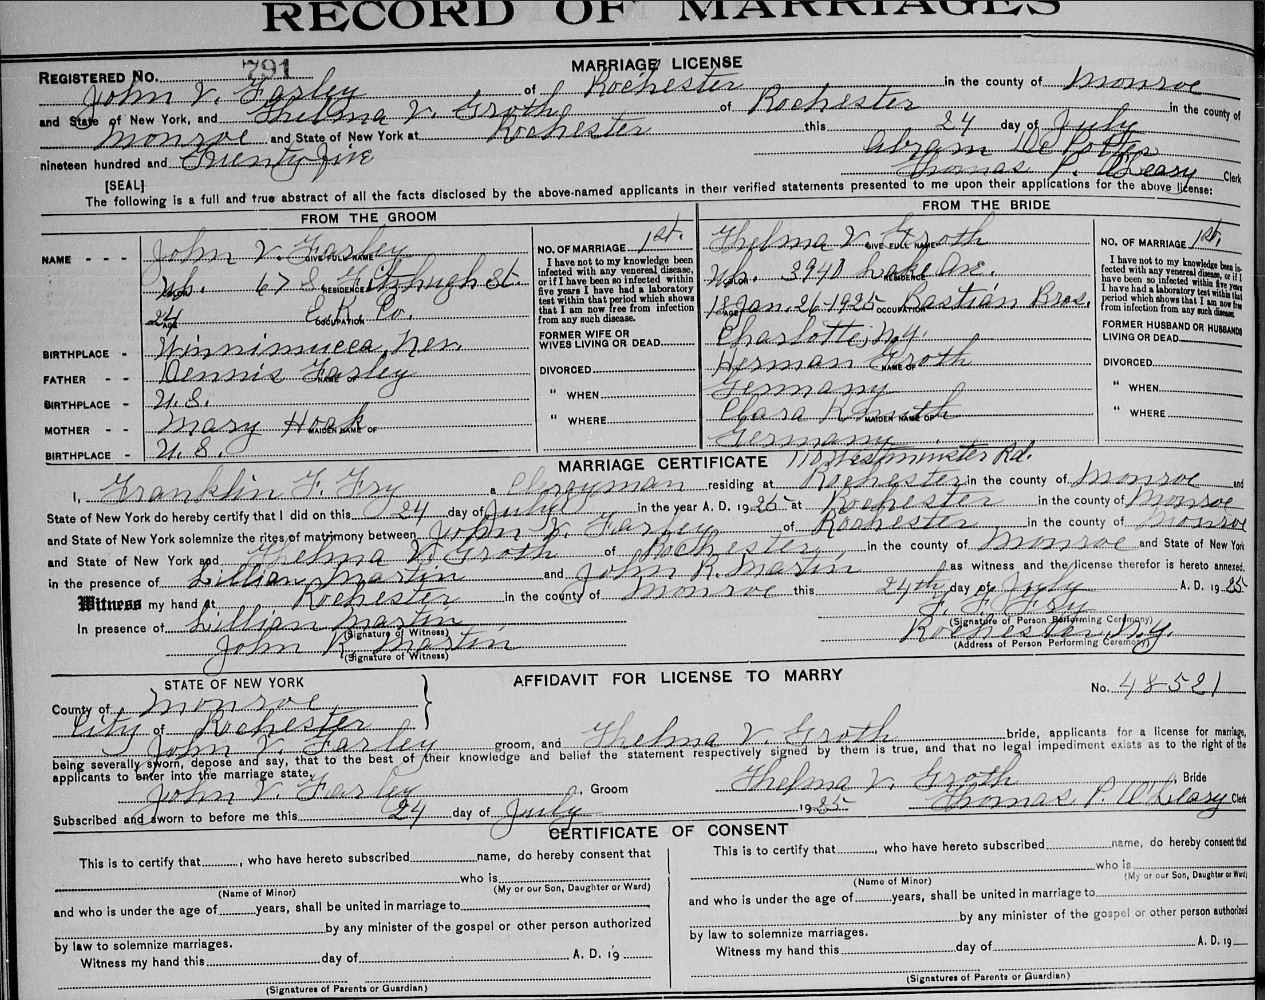 RECORD OF MARRIAGES
MARRIAGE LICENSE
REGISTERED No. 791
John V. Farley of Rochester in the county of Monroe
and State of New York, and Thelma V. Groth of Rochester in the county of
Monroe and State of New York at Rochester this 24 day of July
nineteen hundred and Twenty five Abram DePotter
Thomas P. O'Leary Clerk
[SEAL]
The following is a full and true abstract of all the facts disclosed by the above-named applicants in their verified statements presented to me upon their applications for the above license:
FROM THE GROOM
NAME - - - John V. Farley
GIVE FULL NAME
Wh. 67 S. Fitzhugh St
COLOR RESIDENCE
24 E. K. Co.
AGE OCCUPATION
BIRTHPLACE - Winnimucca, Nev.
FATHER - - Dennis Farley
NAME OF
BIRTHPLACE - U.S.
MOTHER - - Mary Hoak
MAIDEN NAME OF
BIRTHPLACE - U.S.
NO. OF MARRIAGE 1st.
I have not to my knowledge been
infected with any venereal disease,
or if I have been so infected within
five years I have had a laboratory
test within that period which shows
that I am now free from infection
from any such disease.
FORMER WIFE OR
WIVES LIVING OR DEAD
DIVORCED
" WHEN
" WHERE
FROM THE BRIDE
Thelma V. Groth
GIVE FULL NAME
Wh. 3940 Lake Ave.
COLOR RESIDENCE
18 Jan. 26-1925 Bastian Bros.
AGE OCCUPATION
Charlotte, N.Y.
Herman Groth
NAME OF
Germany
Clara
MAIDEN NAME OF
Germany
NO. OF MARRIAGE 1st.
I have not to my knowledge been in-
fected with any venereal disease, or if I
have been so infected within five years
I have had a laboratory test within that
period which shows that I am now free
from infection from any such disease.
FORMER HUSBAND OR HUSBANDS
LIVING OR DEAD
DIVORCED
" WHEN
" WHERE
MARRIAGE CERTIFICATE 110 Westminster Rd.
I, Franklin F. Fry a Clergyman residing at Rochester in the county of Monroe and
State of New York do hereby certify that I did on this 24 day of July in the year A. D. 1925 at Rochester in the county of Monroe
and State of New York solemnize the rites of matrimony between John V. Farley of Rochester in the county of Monroe
and State of New York and Thelma V. Groth of Rochester, in the county of Monroe and State of New York
in the presence of Lillian Martin and John R. Martin as witness and the license therefor is hereto annexed.
Witness my hand at Rochester in the county of Monroe this 24th day of July A. D. 1925
In presence of Lillian Martin F. F. Fry
(Signature of Witness) (Signature of Person Performing Ceremony)
John R. Martin Rochester, N.Y.
(Signature of Witness) (Address of Person Performing Ceremony)
STATE OF NEW YORK
County of Monroe
City of Rochester
AFFIDAVIT FOR LICENSE TO MARRY
No. 48521
John V. Farley groom, and Thelma V. Groth bride, applicants for a license for marriage,
being severally sworn, depose and say, that to the best of their knowledge and belief the statement respectively signed by them is true, and that no legal impediment exists as to the right of the
applicants to enter into the marriage state.
John V. Farley, Groom Thelma V. Groth, Bride
Subscribed and sworn to before me this 24 day of July 1925 Thomas P. O'Leary Clerk
CERTIFICATE OF CONSENT
This is to certify that, who have hereto subscribed name, do hereby consent that
who is
(Name of Minor) (My or our Son, Daughter or Ward)
and who is under the age of years, shall be united in marriage to
by any minister of the gospel or other person authorized
by law to solemnize marriages.
Witness my hand this day of A. D. 19
(Signatures of Parents or Guardian)
This is to certify that, who have hereto subscribed name, do hereby consent that
who is
(Name of Minor) (My or our Son, Daughter or Ward)
and who is under the age of years, shall be united in marriage to
by any minister of the gospel or other person authorized
by law to solemnize marriages.
Witness my hand this day of A. D. 19
(Signatures of Parents or Guardian)